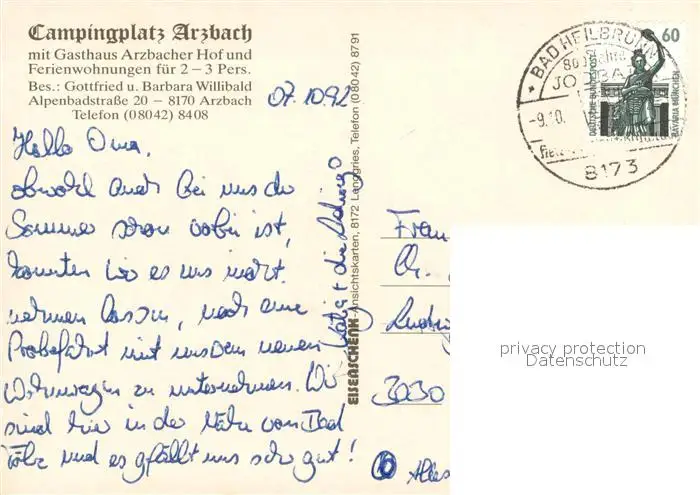 Campingplatz Arzbach
mit Gasthaus Arzbacher Hof und
Ferienwohnungen für 2 – 3 Pers.
Bes.: Gottfried u. Barbara Willibald
Alpenbadstraße 20 – 8170 Arzbach
Telefon (08042) 8408
07.10.92
Hallo Oma,
obwohl auch bei uns der
Sommer schon vorbei ist,
konnten wir es uns nicht
nehmen lassen, noch eine
Probefahrt mit unserem neuen
Wohnwagen zu unternehmen. Wir
sind hier in der Nähe von Bad
Tölz und es gefällt uns sehr gut!
EISENSCHENK-Ansichtskarten, 8172 Lenggries, Telefon (08042) 8791
BAD HEILBRUNN
JODBA
-9.10.
8173
60
DEUTSCHE BUNDESPOST
BAVARIA MÜNCHEN
Frau
Ludwig
3030
Alles
privacy protection
Datenschutz